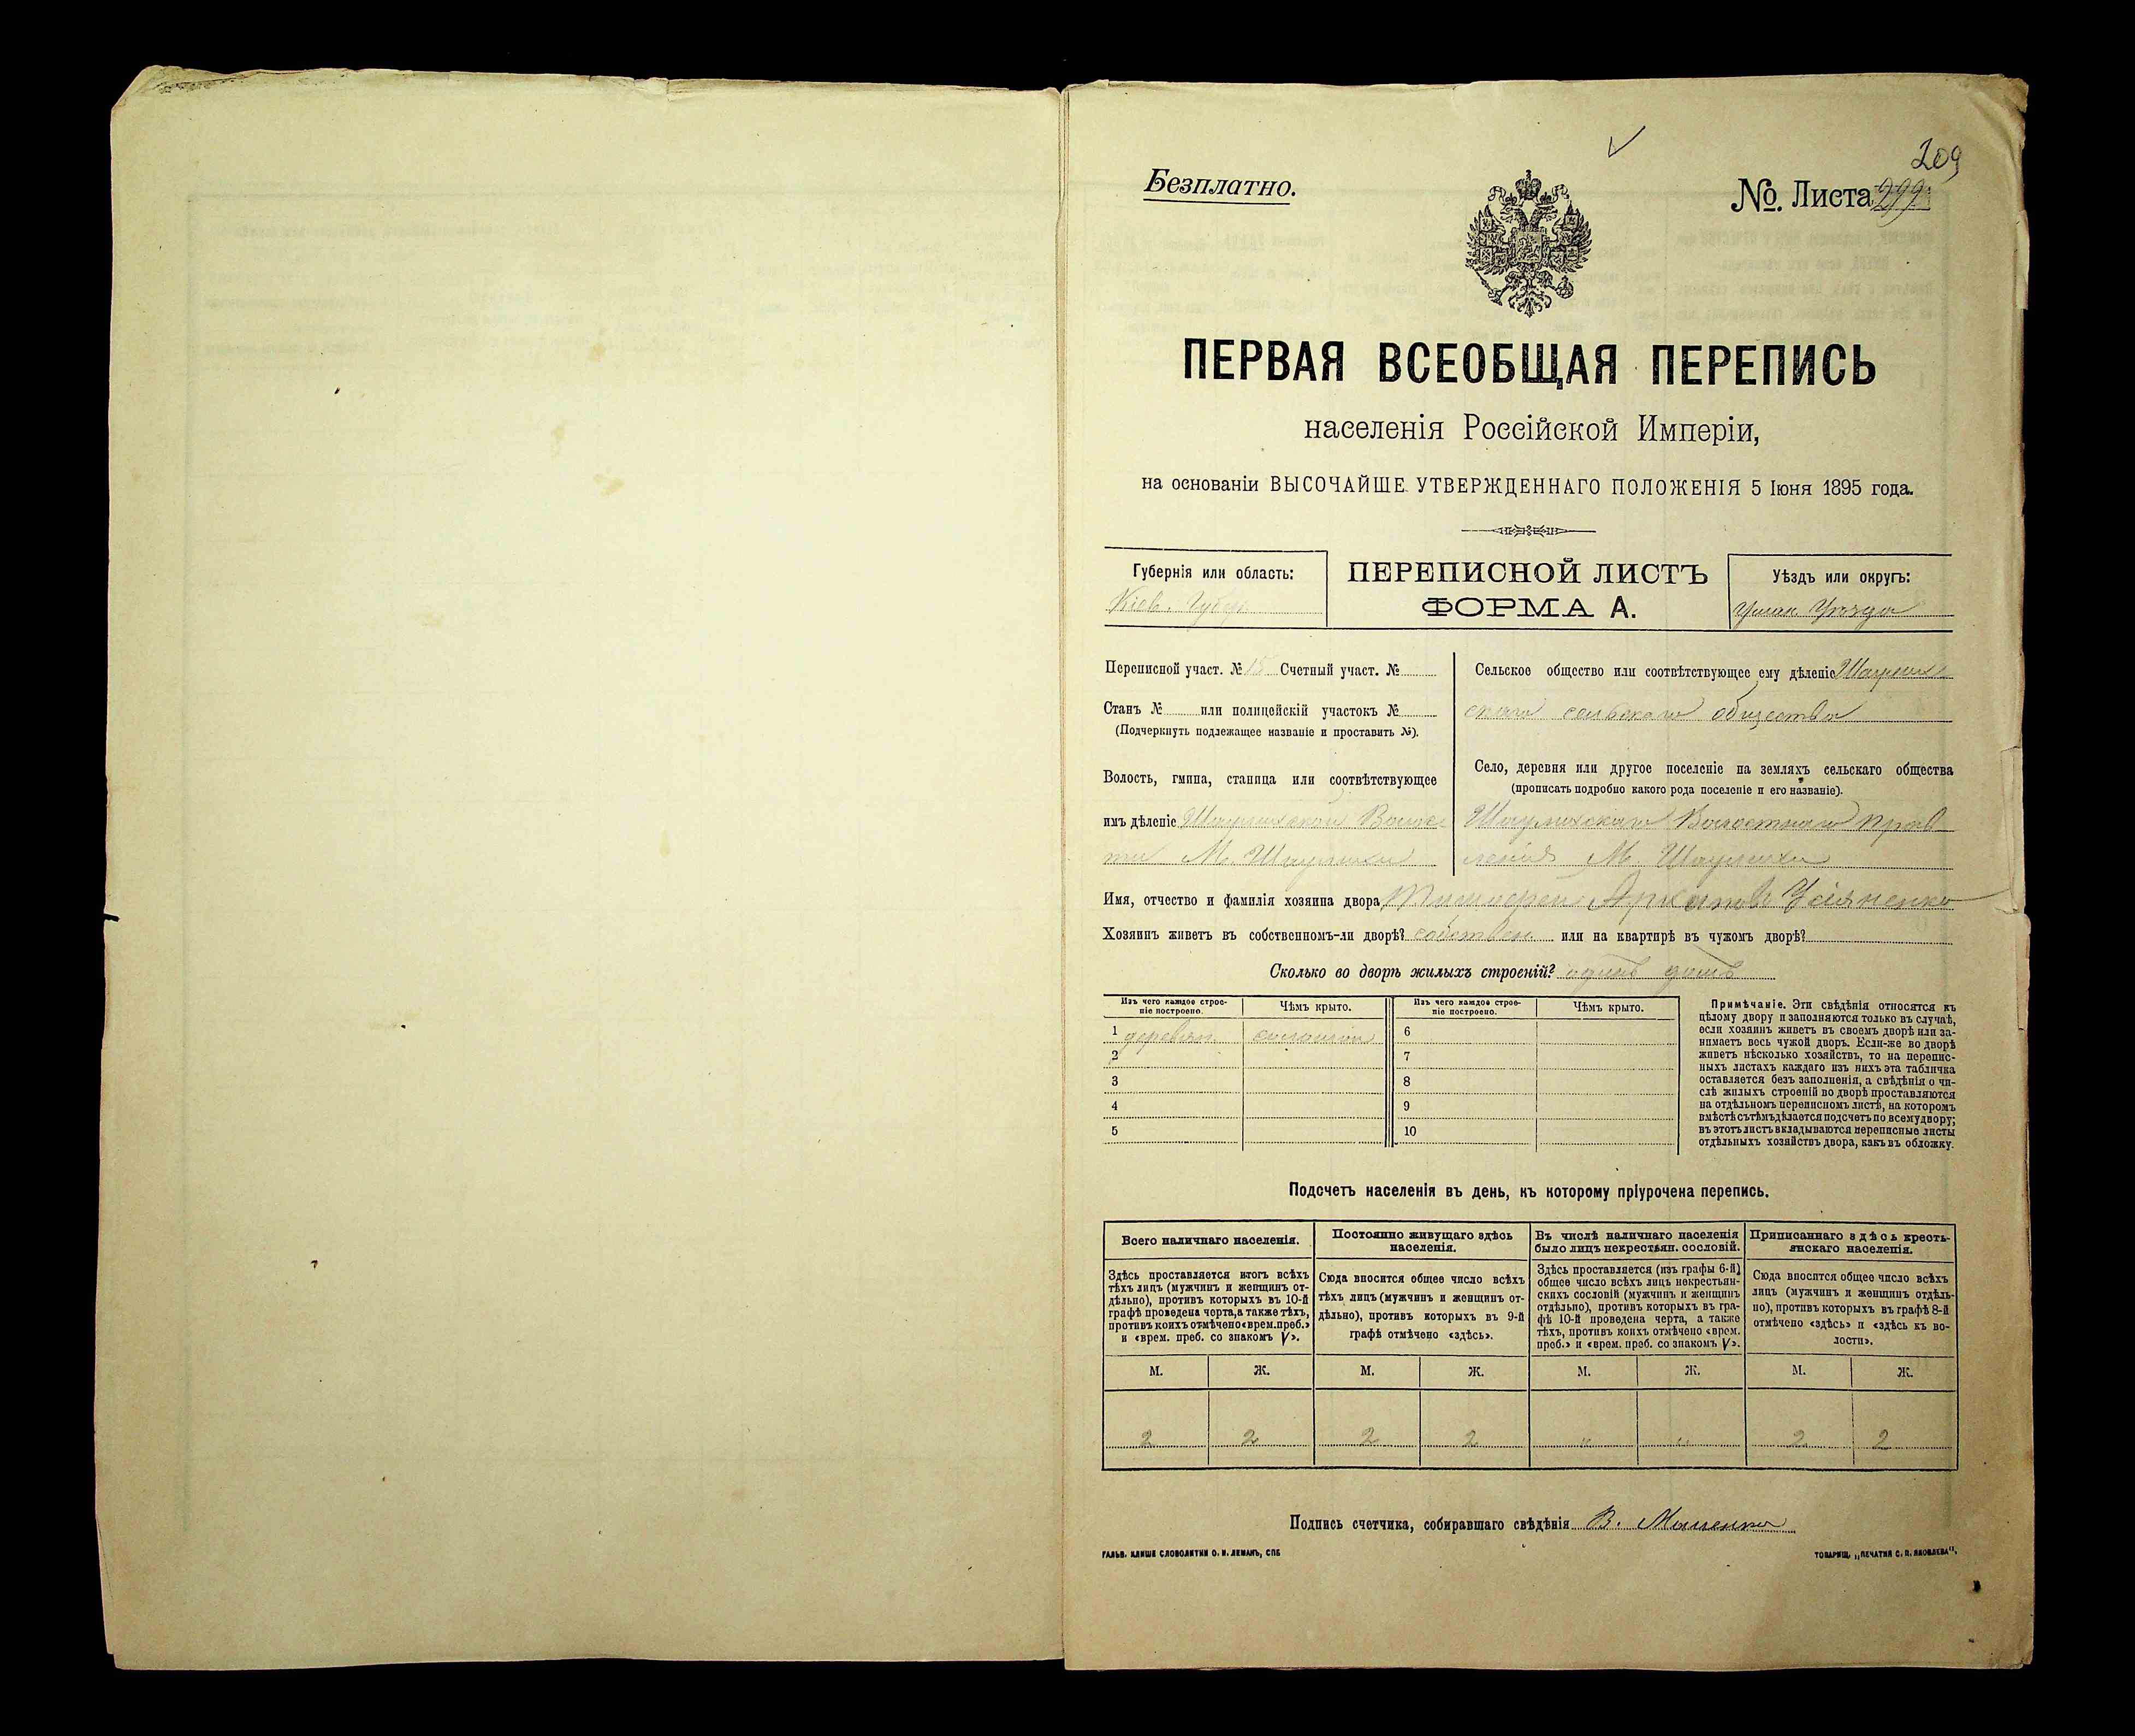 209
Безплатно.
№. Листа 299
ПЕРВАЯ ВСЕОБЩАЯ ПЕРЕПИСЬ
населенія Россійской Имперіи,
на основаніи ВЫСОЧАЙШЕ УТВЕРЖДЕННАГО ПОЛОЖЕНІЯ 5 Іюня 1895 года.
Губернія или область:
Кіев. Губер
ПЕРЕПИСНОЙ ЛИСТЪ
ФОРМА А.
Уѣздъ или округъ:
Уман Уѣзда
Переписной участ. № 15 Счетный участ. №
Станъ № или полицейскій участокъ №
(Подчеркнуть подлежащее названіе и проставить №).
Волость, гмина, станица или соотвѣтствующее
имъ дѣленіе Шаулихской Волос-
ти М. Шаулихи
Сельское общество или соотвѣтствующее ему дѣленіе Шаулих-
скаго сельскаго общества
Село, деревня или другое поселеніе на земляхъ сельскаго общества
(прописать подробно какого рода поселеніе и его названіе).
Шаулихскаго Волостнаго прав
ленія М. Шаулихи
Имя, отчество и фамилія хозяина двора Тимофей
Хозяинъ живетъ въ собственномъ-ли дворѣ? собствен. или на квартирѣ въ чужомъ дворѣ?
Сколько во дворѣ жилыхъ строеній? одинъ домъ
Изъ чего каждое строе-
ніе построено.
Чѣмъ крыто.
Изъ чего каждое строе-
ніе построено.
Чѣмъ крыто.
1 деревян. соломою 6
2 7
3 8
4 9
5 10
Примѣчаніе. Эти свѣдѣнія относятся къ
цѣлому двору и заполняются только въ случаѣ,
если хозяинъ живетъ въ своемъ дворѣ или за-
нимаетъ весь чужой дворъ. Если-же во дворѣ
живетъ нѣсколько хозяйствъ, то на перепис-
ныхъ листахъ каждаго изъ нихъ эта табличка
оставляется безъ заполненія, а свѣдѣнія о чи-
слѣ жилыхъ строеній во дворѣ проставляются
на отдѣльномъ переписномъ листѣ, на которомъ
вмѣстѣ съ тѣмъ дѣлается подсчетъ по всему двору;
въ этотъ листъ вкладываются переписные листы
отдѣльныхъ хозяйствъ двора, какъ въ обложку.
Подсчетъ населенія въ день, къ которому пріурочена перепись.
Всего наличнаго населенія.
Здѣсь проставляется итогъ всѣхъ
тѣхъ лицъ (мужчинъ и женщинъ от-
дѣльно), противъ которыхъ въ 10-й
графѣ проведена черта, а также тѣхъ,
противъ коихъ отмѣчено «врем. преб.»
и «врем. преб. со знакомъ V».
Постоянно живущаго здѣсь
населенія.
Сюда вносится общее число всѣхъ
тѣхъ лицъ (мужчинъ и женщинъ от-
дѣльно), противъ которыхъ въ 9-й
графѣ отмѣчено «здѣсь».
Въ числѣ наличнаго населенія
было лицъ некрестьян. сословій.
Здѣсь проставляется (изъ графы 6-й)
общее число всѣхъ лицъ некрестьян-
скихъ сословій (мужчинъ и женщинъ
отдѣльно), противъ которыхъ въ гра-
фѣ 10-й проведена черта, а также
тѣхъ, противъ коихъ отмѣчено «врем.
преб.» и «врем. преб. со знакомъ V».
Приписаннаго здѣсь кресть-
янскаго населенія.
Сюда вносится общее число всѣхъ
лицъ (мужчинъ и женщинъ отдѣль-
но), противъ которыхъ въ графѣ 8-й
отмѣчено «здѣсь» и «здѣсь къ во-
лости».
М. Ж. М. Ж. М. Ж. М. Ж.
2 2 2 2 " " 2 2
Подпись счетчика, собиравшаго свѣдѣнія В.
ГАЛЬВ. КЛИШЕ СЛОВОЛИТНИ О. И. ЛЕМАНЪ, СПБ
ТОВАРИЩ. „ПЕЧАТНЯ С. П. ЯКОВЛЕВА".